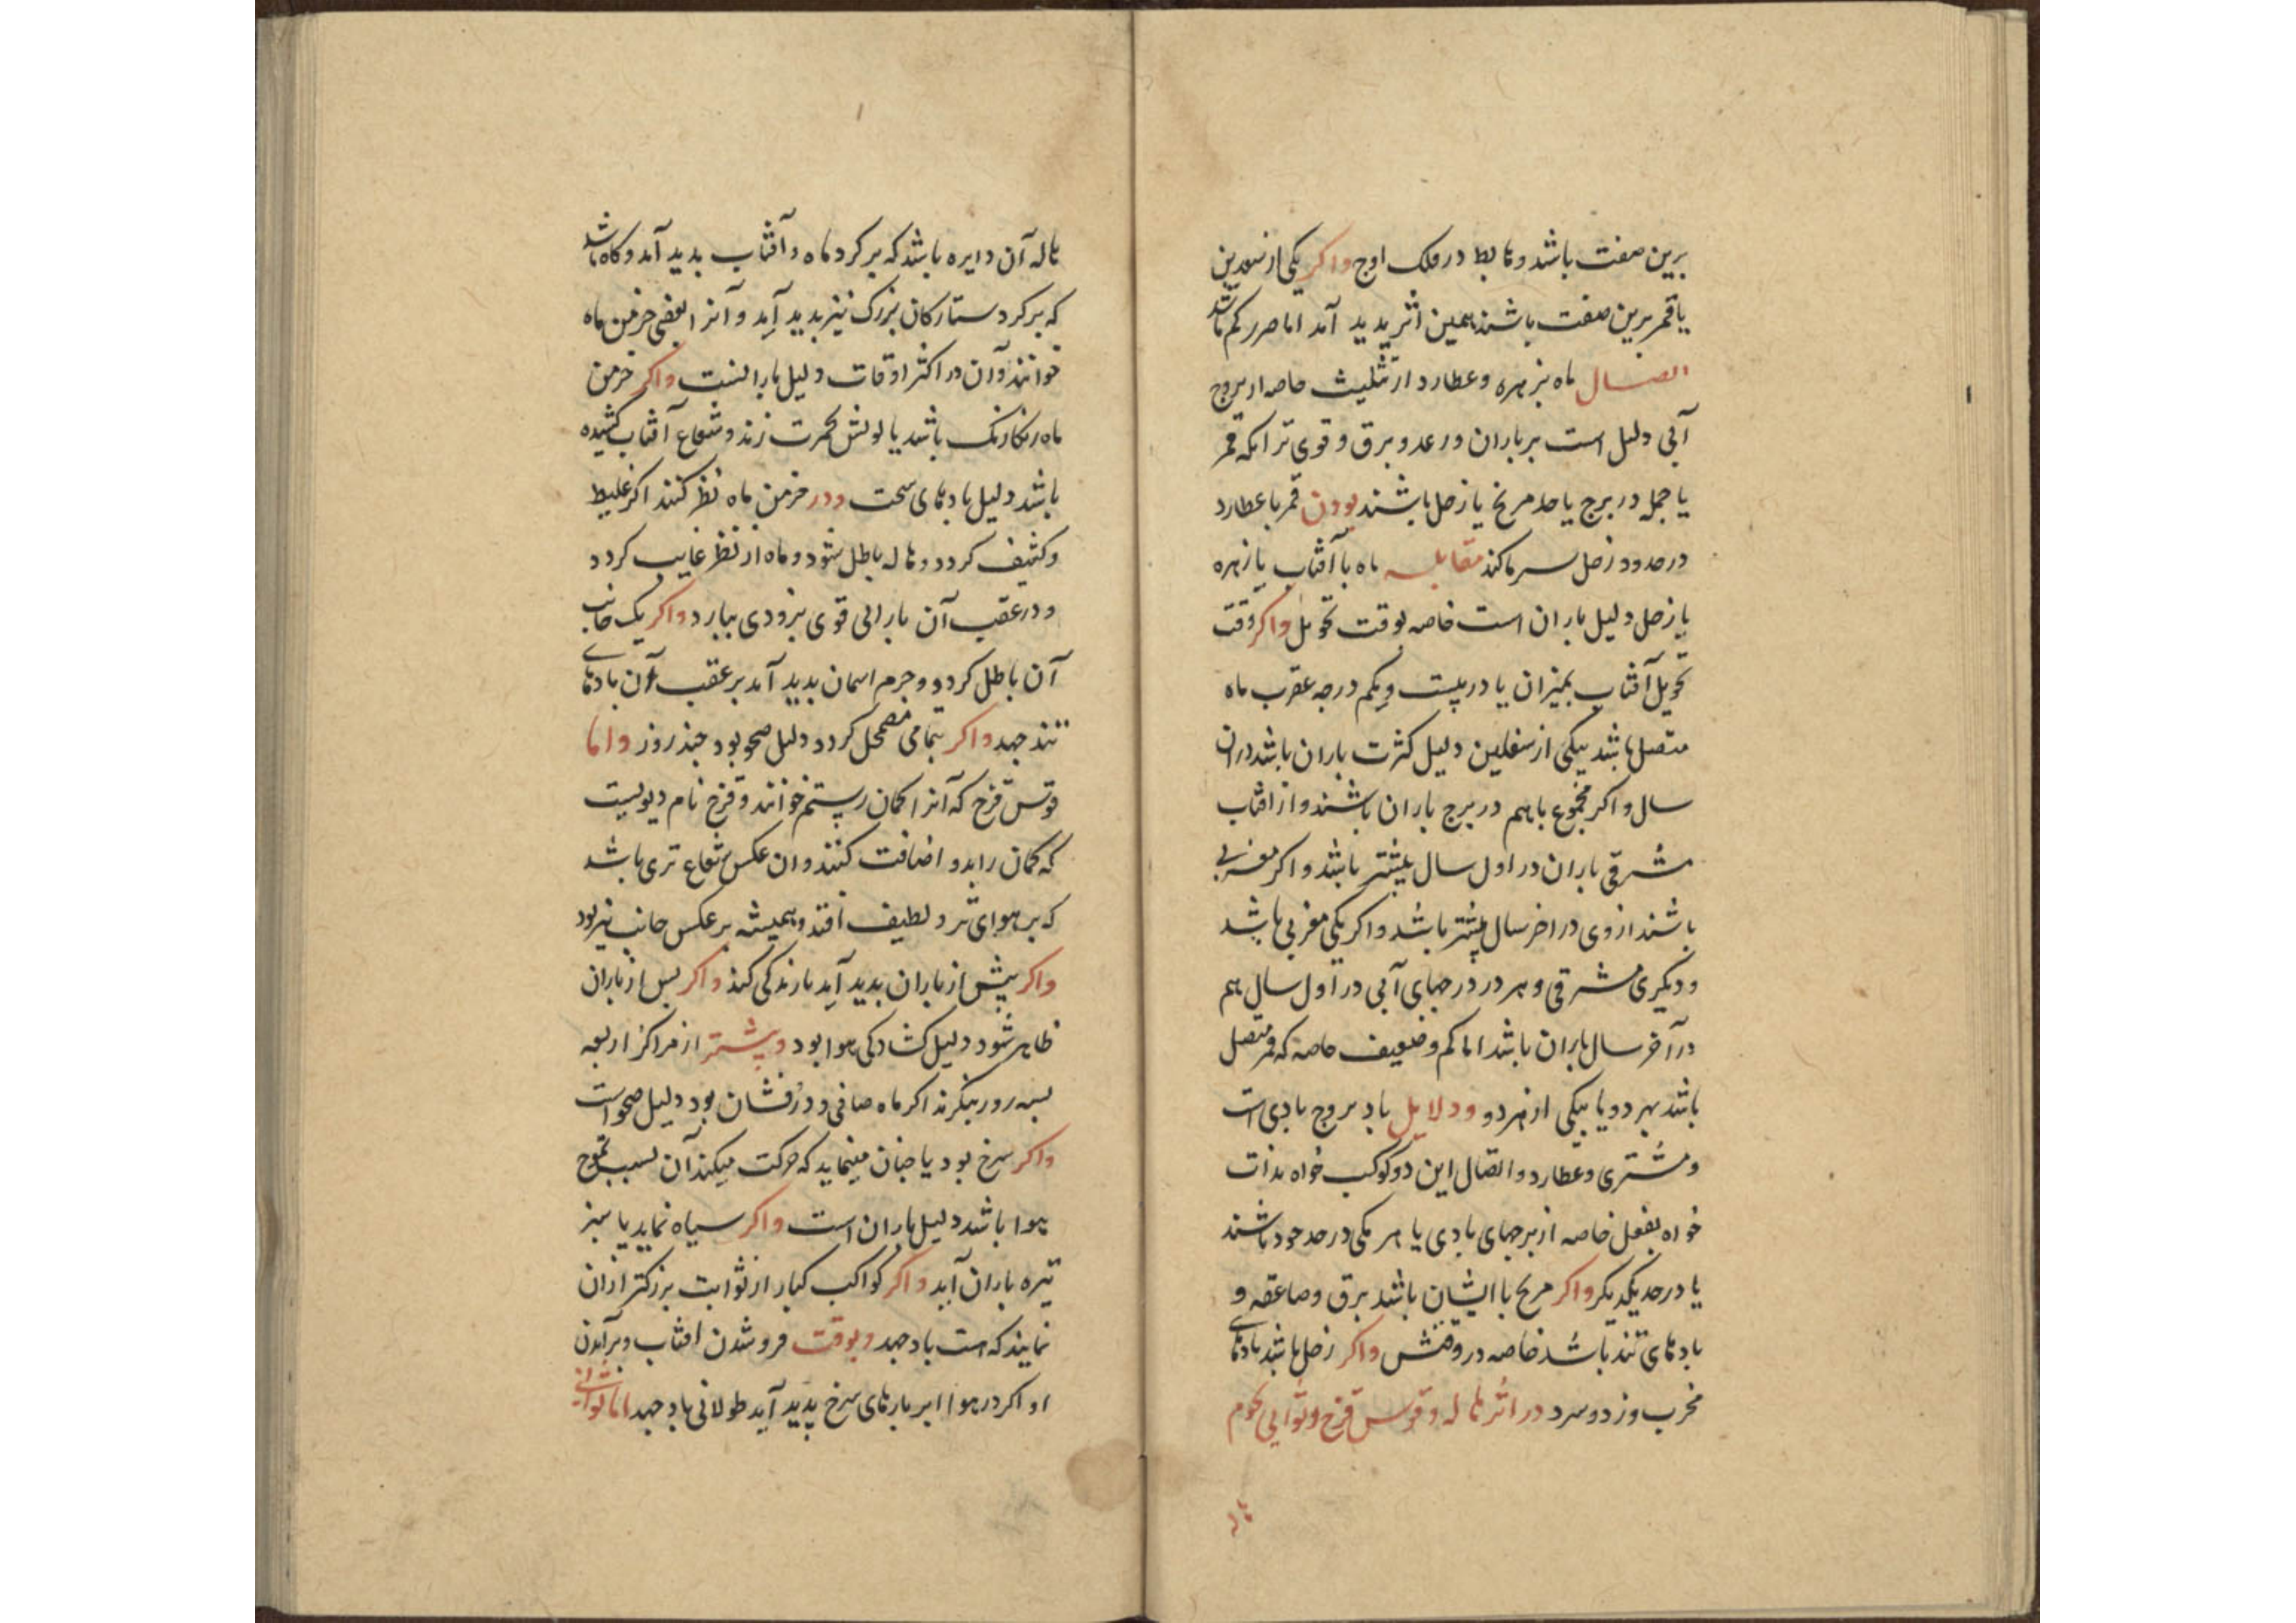 برین صفت باشد و هابط در فلک اوج واکر یکی از سعدین
یا قمر برین صفت باشند همین اثر پدید آمد اما ضرر کم باشد
اتصال ماه بزهره و عطارد از تثلیث خاصه از بروج
آبی دلیل است بر باران و رعد و برق و قوی تر انکه قمر
یا جمله در برج یا حد مریخ یا زحل باشند بودن قمر با عطارد
در حدود زحل سرما کند مقابله ماه با آفتاب یا زهره
یا زحل دلیل باران است خاصه بوقت تحویل واکر وقت
تحویل آفتاب بمیزان یا در بیست و یکم درجه عقرب ماه
متصل باشد بیکی از سفلیین دلیل کثرت باران باشد دران
سال واکر مجموع باهم در برج باران باشند و از افتاب
مشرقی باران در اول سال بیشتر باشد واکر مغربی
باشند از وی در اخر سال بیشتر باشد واکر یکی مغربی باشد
و دیکری مشرقی و هر دو در برجهای آبی در اول سال هم
در آخر سال باران باشد اما کم و ضعیف خاصه که قمر متصل
باشد بهر دو یا بیکی از هر دو ودلایل باد بروج بادی است
و مشتری و عطارد و اتصال این دو کوکب خواه بذات
خواه بفعل خاصه از برجهای بادی یا هر یکی در حد خود باشند
یا در حد یکدیکر واکر مریخ با ایشان باشد برق و صاعقه و
بادهای تند باشد خاصه در وقتش واکر زحل باشد بادهای
مخرب وزد و سرد در اثر هاله و قوس قزح و ثوانی نجوم
هاله
هاله آن دایره باشد که بر کرد ماه و آفتاب بدید آمد و کاه باشد
که بر کرد ستارکان بزرک نیز بدید آید و آنرا بعضی خرمن ماه
خوانند و آن در اکثر اوقات دلیل بارانست واکر خرمن
ماه رنکارنک باشد یا لونش بحمرت زند و شعاع آفتاب کشیده
باشد دلیل بادهای سخت ودر خرمن ماه نظر کنند اکر غلیظ
و کثیف کردد و هاله باطل شود و ماه از نظر غایب کردد
و در عقب آن بارانی قوی بزودی ببارد واکر یک جانب
آن باطل کردد و جرم اسمان بدید آمد بر عقب آن بادهای
تند جهد واکر بتمامی مضمحل کردد دلیل صحو بود چند روز واما
قوس قزح که آنرا کمان رستم خوانند و قزح نام دیویست
که کمان را بدو اضافت کنند و ان عکس شعاع تری باشد
که بر هوای تر و لطیف افتد و همیشه بر عکس جانب نیر بود
واکر پیش از باران بدید آید بارندکی کند واکر بس از باران
ظاهر شود دلیل کشادکی هوا بود وپیشتر از مراکز اربعه
بسه روز بنکرند اکر ماه صافی و درفشان بود دلیل صحو است
واکر سرخ بود یا چنان مینماید که حرکت میکند آن بسبب تموج
هوا باشد دلیل باران است واکر سیاه نماید یا سبز
تیره باران آید واکر کواکب کبار از ثوابت بزرکتر ازان
نمایند که هست باد جهد وبوقت فرو شدن افتاب و برآمدن
او اکر در هوا ابر پارهای سرخ پدید آید طولانی باد جهد اما ثوانی